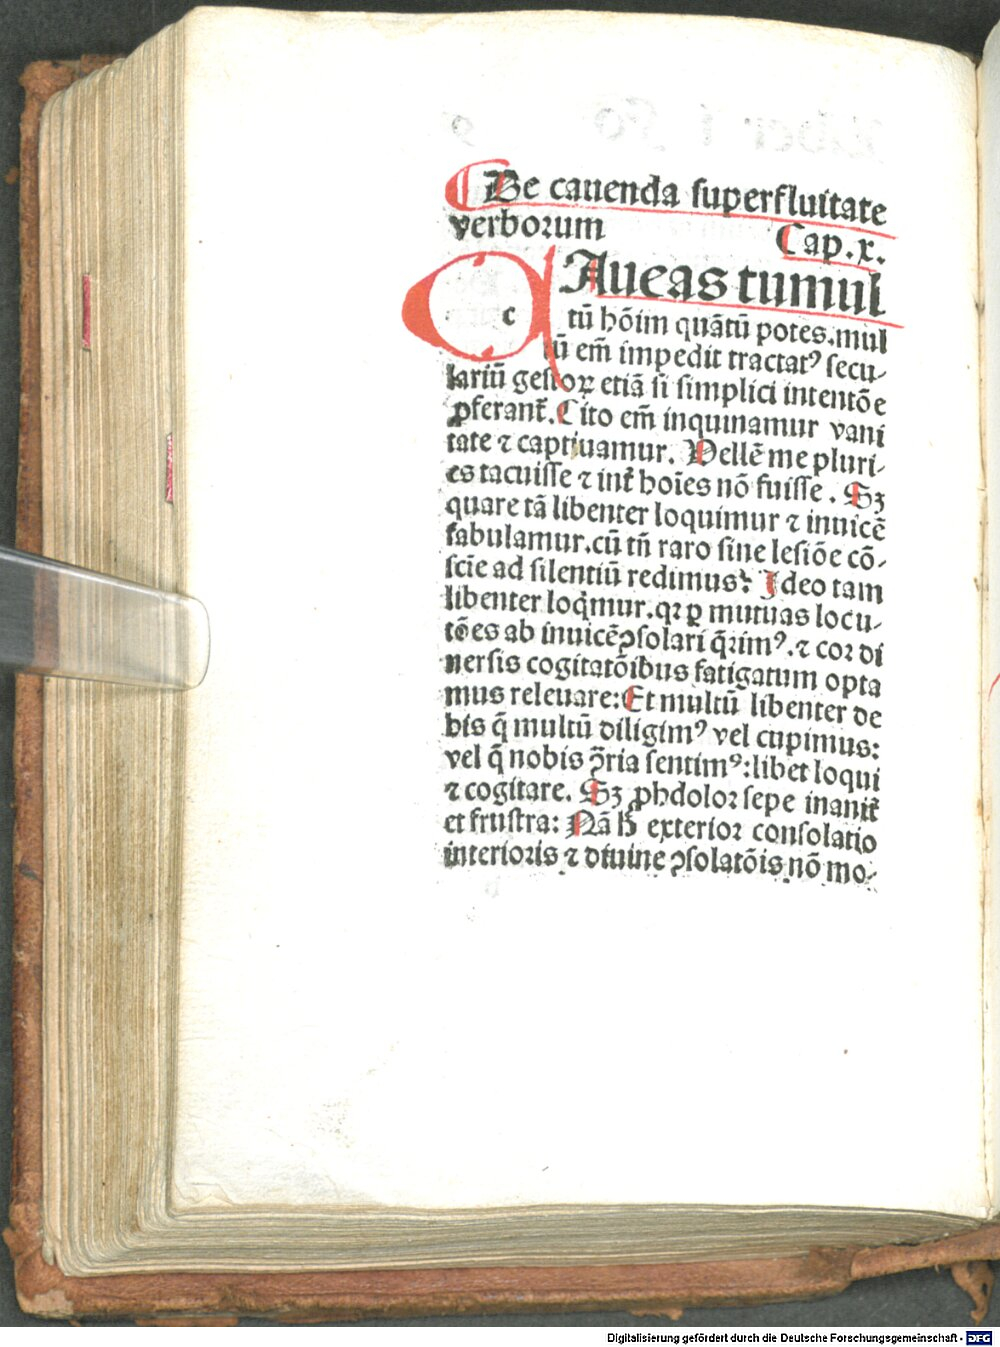 De cauenda superfluitate
verborum Cap.x.
c Aueas tumul
tū hōim quātū potes.mul
tū em̄ impedit tractatꝰ secu-
lariū gestoꝝ etiā si simplici intentōe
ꝓferant᷑. Cito em̄ inquinamur vani
tate ⁊ captiuamur. Vellē me pluri-
es tacuisse ⁊ int᷑ hoīes nō fuisse. Sꝫ
quare tā libenter loquimur ⁊ inuicē
fabulamur.cū tn̄ raro sine lesiōe cō-
scīe ad silentiū redimus: Ideo tam
libenter loqͥmur.qꝛ ꝑ mutuas locu-
tōes ab inuicē ꝯsolari q̄rimꝰ.⁊ cor di
uersis cogitatōibus fatigatum opta
mus releuare: Et multū libenter de
his q̄ multū diligimꝰ vel cupimus:
vel q̄ nobis ꝯ̄ria sentimꝰ: libet loqui
⁊ cogitare. Sꝫ ꝓhdolor sepe inanit᷑
et frustra: Nā h̄ exterior consolatio
interioris ⁊ diuine ꝯsolatōis nō mo-
Digitalisierung gefördert durch die Deutsche Forschungsgemeinschaft - DFG